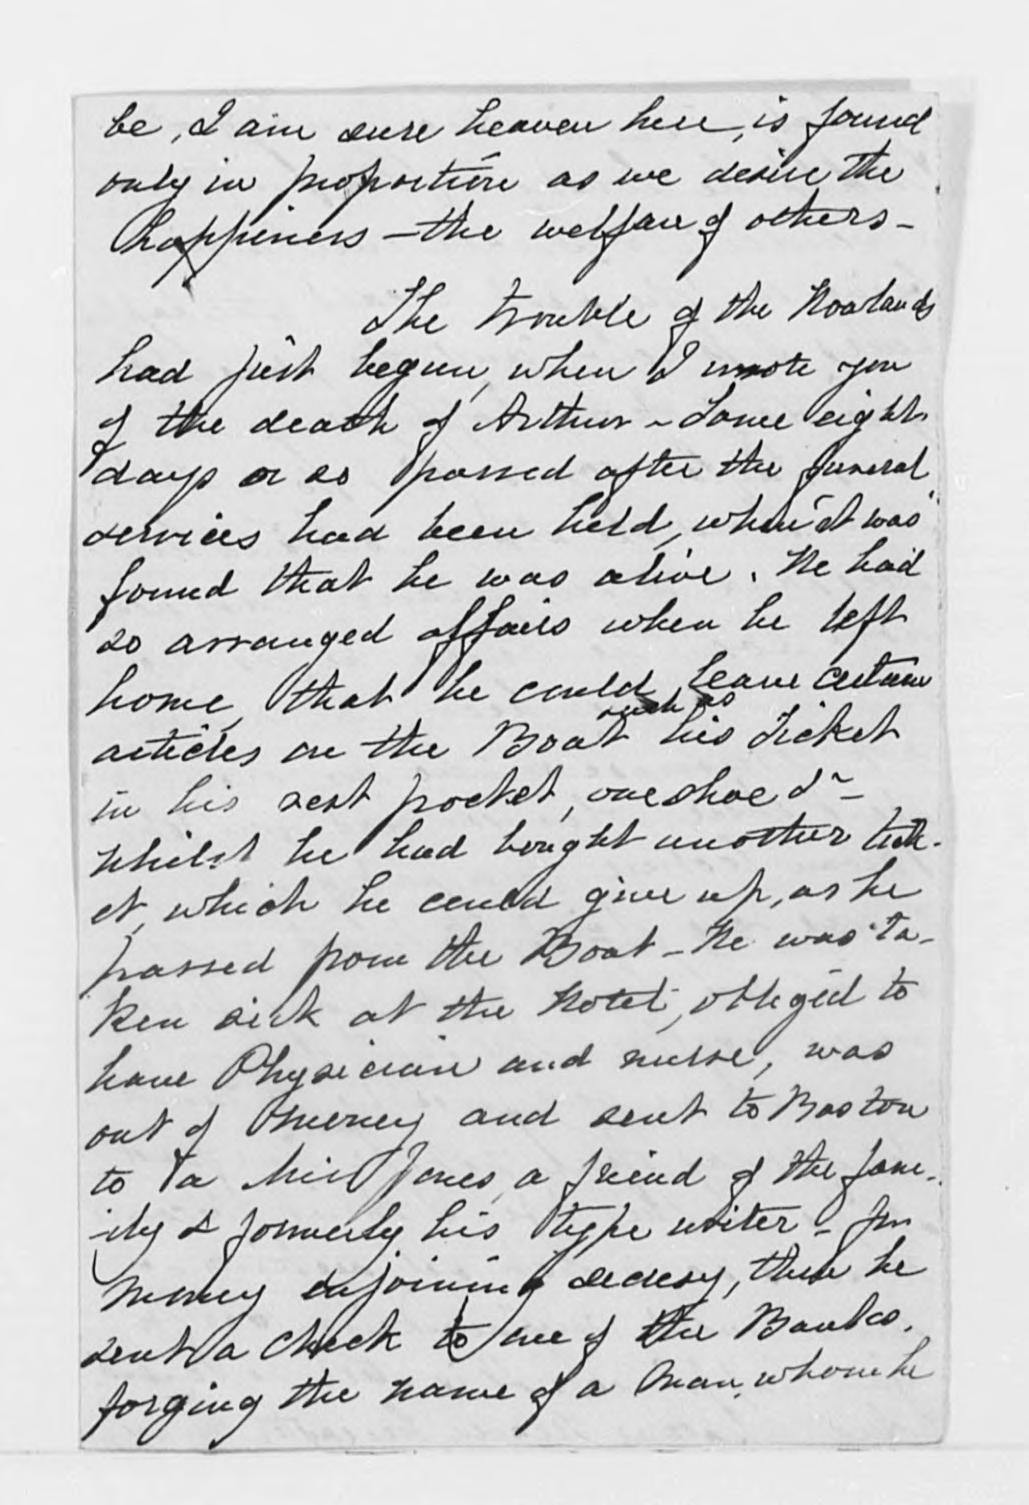 be, I am sure heaven here, is found
only in proportion as we desire the
happiness – the welfare of others –
The trouble of the Rowlands
had just begun, when I wrote you
of the death of Arthur – Some eight
days or so passed after the funeral
services had been held, when it was
found that he was alive. He had
so arranged affairs when he left
home, that he could leave certain
such as
articles on the Boat his Ticket
in his vest pocket, one shoe &c –
Whilst he had bought another tick-
et, which he could give up, as he
passed from the Boat – He was ta-
ken sick at the Hotel, obliged to
have Physician and nurse, was
out of money and sent to Boston
to a Miss Jones, a friend of the fam-
ily & formerly his type writer – for
money enjoining secresy, then he
sent a check to one of the Banks,
forging the name of a man, whom he